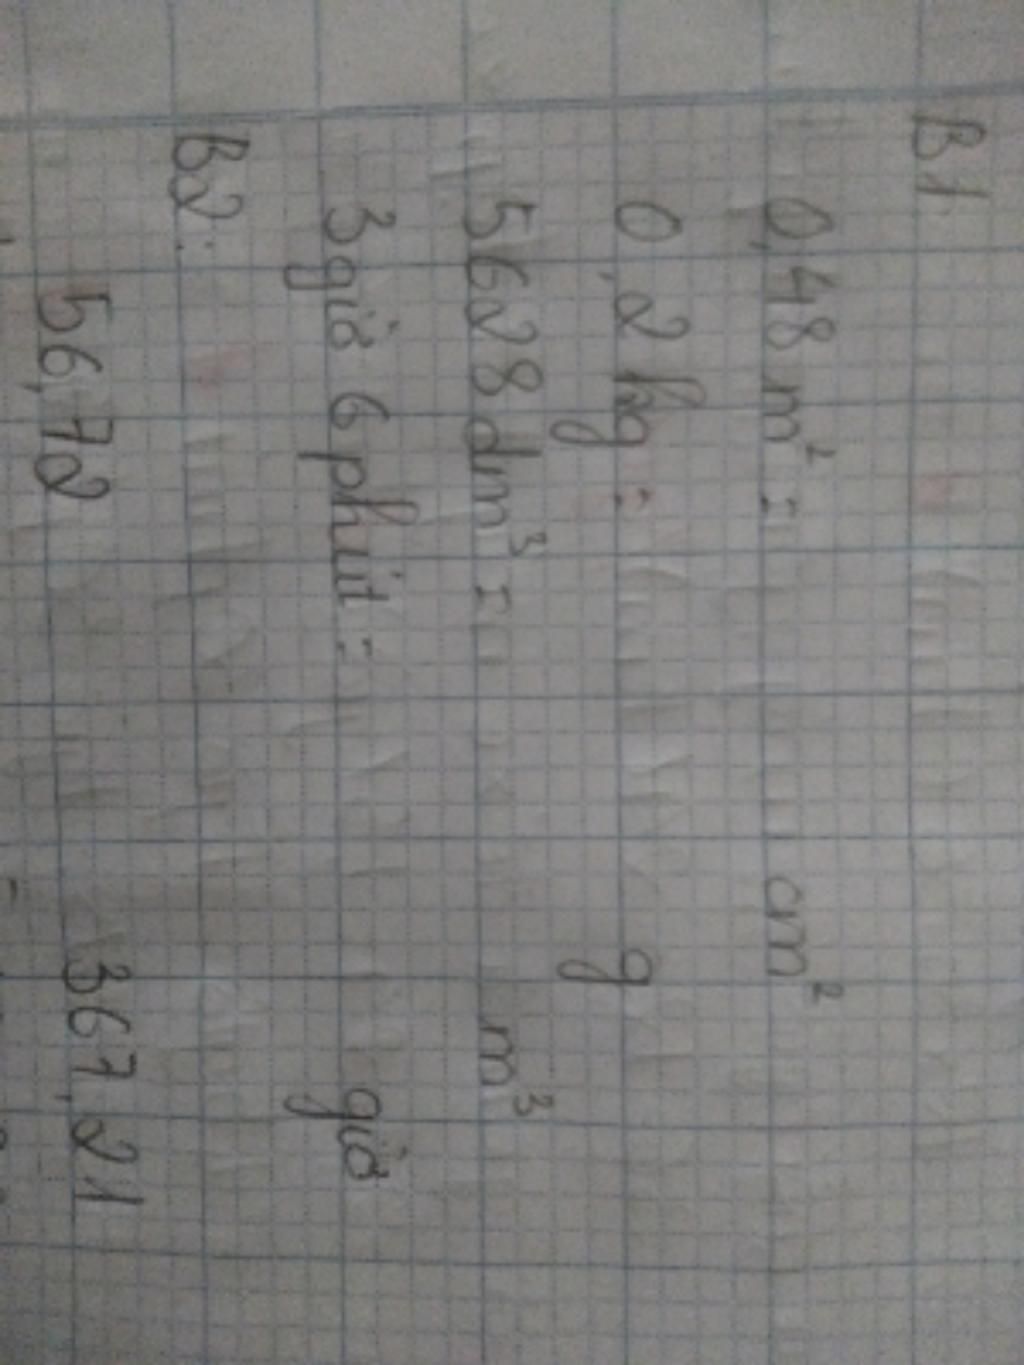 B1
0,48 m² = cm²
0,2 kg = g
5628 dm³ = m³
3 giờ 6 phút = giờ
B2:
56,72 367,21